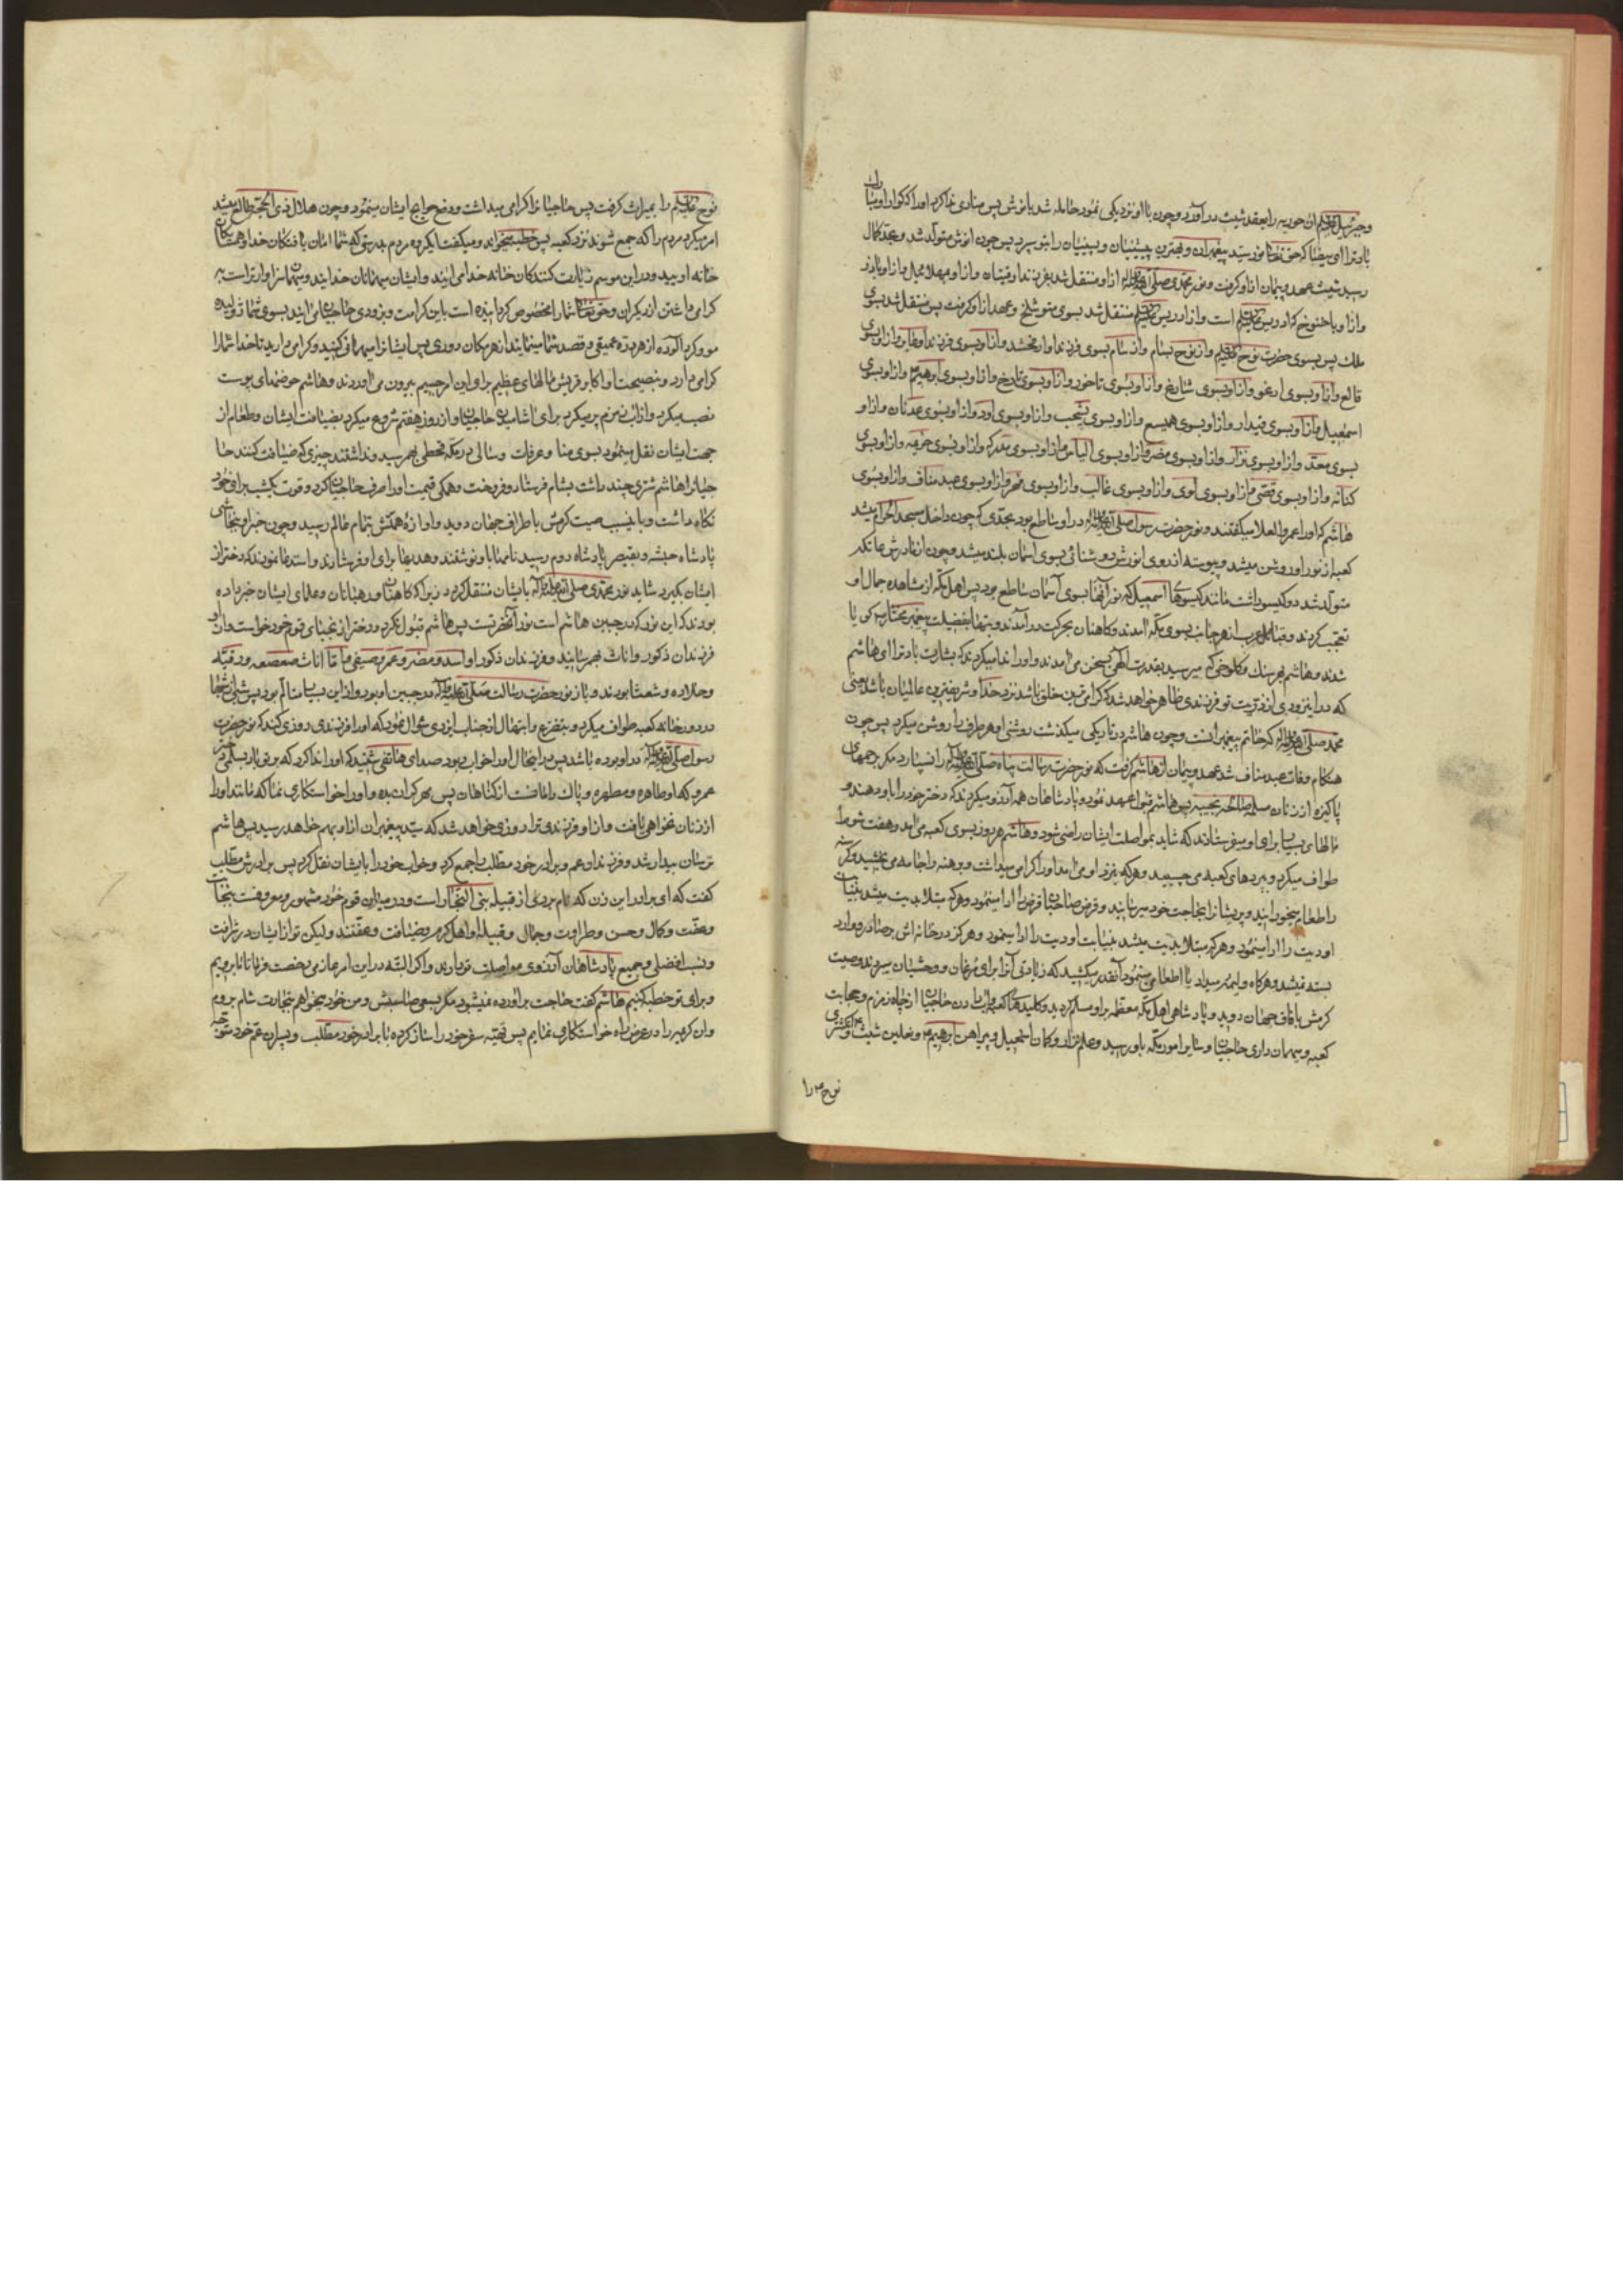 و جبرئیل علیه السلم ان حوریه را بعقد شیث در آورد و چون با او نزدیکی نمود حامله شد بانوش پس منادی ندا کرد او را که گوارا و مبارک
باد ترا ای بیضا که حق تعالی نور سید پیغمبران و بهترین پیشینیان و پسینیان را بتو سپرد پس چون انوش متولد شد و بحد کمال
رسید شیث عهد و پیمان از او گرفت و نور محمدی صلی الله علیه و آله از او منتقل شد بفرزند او قینان و از او بمهلائیل و از او بادد
و از او باخنوخ که ادریس علیه السلم است و از ادریس علیه السلم منتقل شد بسوی متوشلخ و عهد از او گرفت پس منتقل شد بسوی
ملک پس بسوی حضرت نوح علیه السلم و از نوح بسام و از سام بسوی فرزند او ارفخشد و از او بسوی فرزند او عابر و از او بسوی
قالع و از او بسوی ارغو و از او بسوی شارغ و از او بسوی تاخور و از او بسوی تارخ و از او بسوی ابرهیم و از او بسوی
اسمعیل و از او بسوی قیدار و از او بسوی همیسع و از او بسوی یشحب و از او بسوی ادد و از او بسوی عدنان و از او
بسوی معد و از او بسوی نزار و از او بسوی مضر و از او بسوی الیاس و از او بسوی مدرکه و از او بسوی خزیمه و از او بسوی
کنانه و از او بسوی قصی و از او بسوی لوی و از او بسوی غالب و از او بسوی فهر و از او بسوی عبد مناف و از او بسوی
هاشم که او را عمرو العلا میگفتند و نور حضرت رسول صلی الله علیه و آله در او ساطع بود بحدی که چون داخل مسجد الحرام میشد
کعبه از نور او روشن میشد و پیوسته از روی انورش روشنائی بسوی اسمان بلند میشد و چون از مادرش عاتکه
متولد شد دو گیسو داشت مانند گیسوهای اسمعیل که نور آنها بسوی آسمان ساطع بود پس اهل مکه از مشاهده جمال او
تعجب کردند و قبایل عرب از هر جانب بسوی مکه آمدند و کاهنان بحرکت در آمدند و بتها بفضیلت پیغمبر مختار گویا
شدند و هاشم بهر سنک و کلوخی که میرسید بقدرت آلهی بسخن می آمدند و او را ندا میکردند که بشارت باد ترا ای هاشم
که در این زودی از ذریت تو فرزندی ظاهر خواهد شد که گرامی ترین خلق باشد نزد خدا و شریفترین عالمیان باشد یعنی
محمد صلی الله علیه و آله که خاتم پیغمبرانست و چون هاشم در تاریکی میگذشت روشنی او هر طرف را روشن میکرد پس چون
هنگام وفات عبد مناف شد عهد و پیمان از هاشم گرفت که نور حضرت رسالت پناه صلی الله علیه و آله را نسپارد مگر برحمهای
پاکیزه از زنان مسلمه صالحه نجیبه پس هاشم قبول عهد نمود و پادشاهان همه آرزو میکردند که دختر خود را باو دهند و
مالهای بسیار برای او میفرستادند که شاید بمواصلت ایشان راضی شود و هاشم هر روز بسوی کعبه می آمد و هفت شوط
طواف میکرد و بپردهای کعبه می چسبید و هرکه بنزد او می آمد او را گرامی میداشت و برهنه را جامه می بخشید و گرسنه
را طعام میخورانید و پریشانرا بحاجت خود میرسانید و قرض صاحبان قرض را ادا مینمود و هرکه مبتلا بدیت میشد بنیابت
او دیت را ادا مینمود و هرکه مبتلا بدیت میشد بنیابت او دیت را ادا مینمود و هرگز در خانه اش بر صادر و وارد
بسته نمیشد و هرگاه ولیمه میداد یا اطعامی مینمود آنقدر میکشید که زیادتی آنرا برای مرغان و وحشیان میبردند و صیت
کرمش بآفاق جهان دوید و پادشاهی اهل مکه معظمه بر او مسلم گردید و کلیدهای کعبه و آب دادن حاجیان از چاه زمزم و حجابت
کعبه و مهمان داری حاجیان و سایر امور مکه باو رسید و علم نزار و کمان اسمعیل و پیراهن ابرهیم و نعلین شیث و انگشتری
نوح م را
نوح علیه السلم را بمیراث گرفت پس حاجیان را گرامی میداشت و رفع حوایج ایشان مینمود و چون هلال ذی الحجه طالع میشد
امر میکرد مردم را که جمع شوند نزد کعبه پس خطبه میخواند و میگفت ایگروه مردم بدرستی که شما امان یافتگان خدا و همسایگان
خانه اویید و در این موسم زیارت کنندگان خانه خدا می آیند و ایشان مهمانان خدایند و مهمان سزاوارتر است به
گرامی داشتن از دیگران و حق تعالی شما را مخصوص گردانیده است باین کرامت و بزودی حاجیان می آیند بسوی شما ژولیده
مو و گرد آلوده از هر دره عمیقی و قصد شما مینمایند از هر مکان دوری پس ایشان را مهمانی کنید و گرامی دارید تا خدا شما را
گرامی دارد و بنصیحت او اکابر قریش مالهای عظیم برای این امر جسیم بیرون می آوردند و هاشم حوضهای پوست
نصب میکرد و از آب زمزم پر میکرد برای آشامیدن حاجیان و از روز هفتم شروع میکرد بضیافت ایشان و طعام از
جهت ایشان نقل مینمود بسوی منا و عرفات و سالی در مکه قحطی بهم رسید و نداشتند چیزی که ضیافت کنند حا
جیانرا هاشم شتری چند داشت بشام فرستاد و فروخت و همگی قیمت او را صرف حاجیان کرد و قوت یکشب برای خود
نگاه نداشت و باین سبب صیت کرمش باطراف جهان دوید و آوازه همتش بتمام عالم رسید و چون خبر او بنجاشی
پادشاه حبشه و بقیصر پادشاه روم رسید نامها باو نوشتند و هدیها برای او فرستادند و استدعا نمودند که دختر از
ایشان بگیرد شاید نور محمدی صلی الله علیه و آله بایشان منتقل گردد زیرا که کاهنان و رهبانان و علمای ایشان خبر داده
بودند که این نور که در جبین هاشم است نور آنحضرتست پس هاشم قبول نکرد و دختر از نجبای قوم خود خواست و از او
فرزندان ذکور و اناث بهم رسانید و فرزندان ذکور او اسد و مضر و عمرو و صیفی و اما اناث صعصعه و رقیه
و خلاده و شعثا بودند و باز نور حضرت رسالت صلی الله علیه و آله در جبین او بود و از این بسیار متالم بود پس شبی از شبها
در دور خانه کعبه طواف میکرد و بتضرع و ابتهال از جناب ایزدی سؤال نمود که او را فرزندی روزی کند که نور حضرت
رسول صلی الله علیه و آله در او بوده باشد پس در اینحال او را خواب ربود صدای هاتفی شنید که او را ندا کرد که بر تو باد بسلمی دختر
عمرو که او طاهره و مطهره و پاک دامانست از گناهان پس مهر گران بده و او را خواستکاری نما که مانند او را
از زنان نخواهی یافت و از او فرزندی ترا روزی خواهد شد که سید پیغمبران از او بهم خواهد رسید پس هاشم
ترسان بیدار شد و فرزندان عم و برادر خود مطلب را جمع کرد و خواب خود را بایشان نقل کرد پس برادرش مطلب
گفت که ای برادر این زن که نام بردی از قبیله بنی النجار است و در میان قوم خود مشهور و معروفست بنجابت
و عفت و کمال و حسن و طراوت و جمال و قبیله او اهل کرم و ضیافت و عفتند و لیکن تو از ایشان در شرافت
و نسب افضلی و جمیع پادشاهان آرزوی مواصلت تو دارند و اگر البته در این امر جازمی رخصت فرما تا ما برویم
و برای تو خطبه کنیم هاشم گفت حاجت برآورده نمیشود مگر بسعی صاحبش و من خود میخواهم بتجارت شام بروم
و ان کریمه را در عرض راه خواستکاری نمایم پس تهیه سفر خود را ساز کرده با برادر خود مطلب و پسران عم خود متوجه